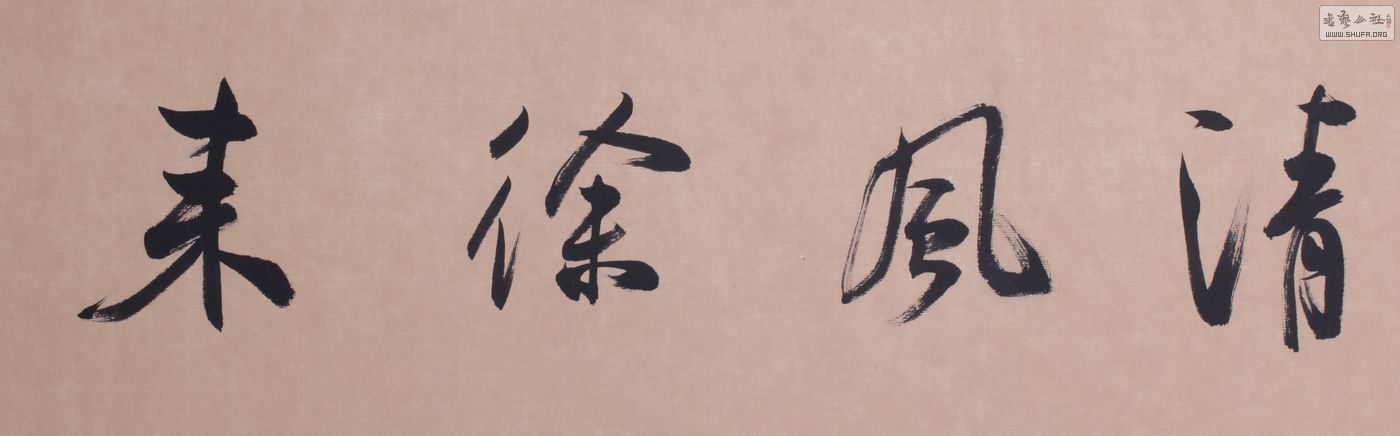 清風徐来
书艺公社
WWW.SHUFA.ORG